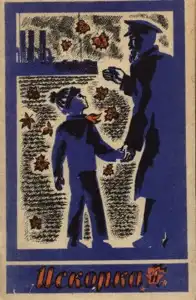 Искорка